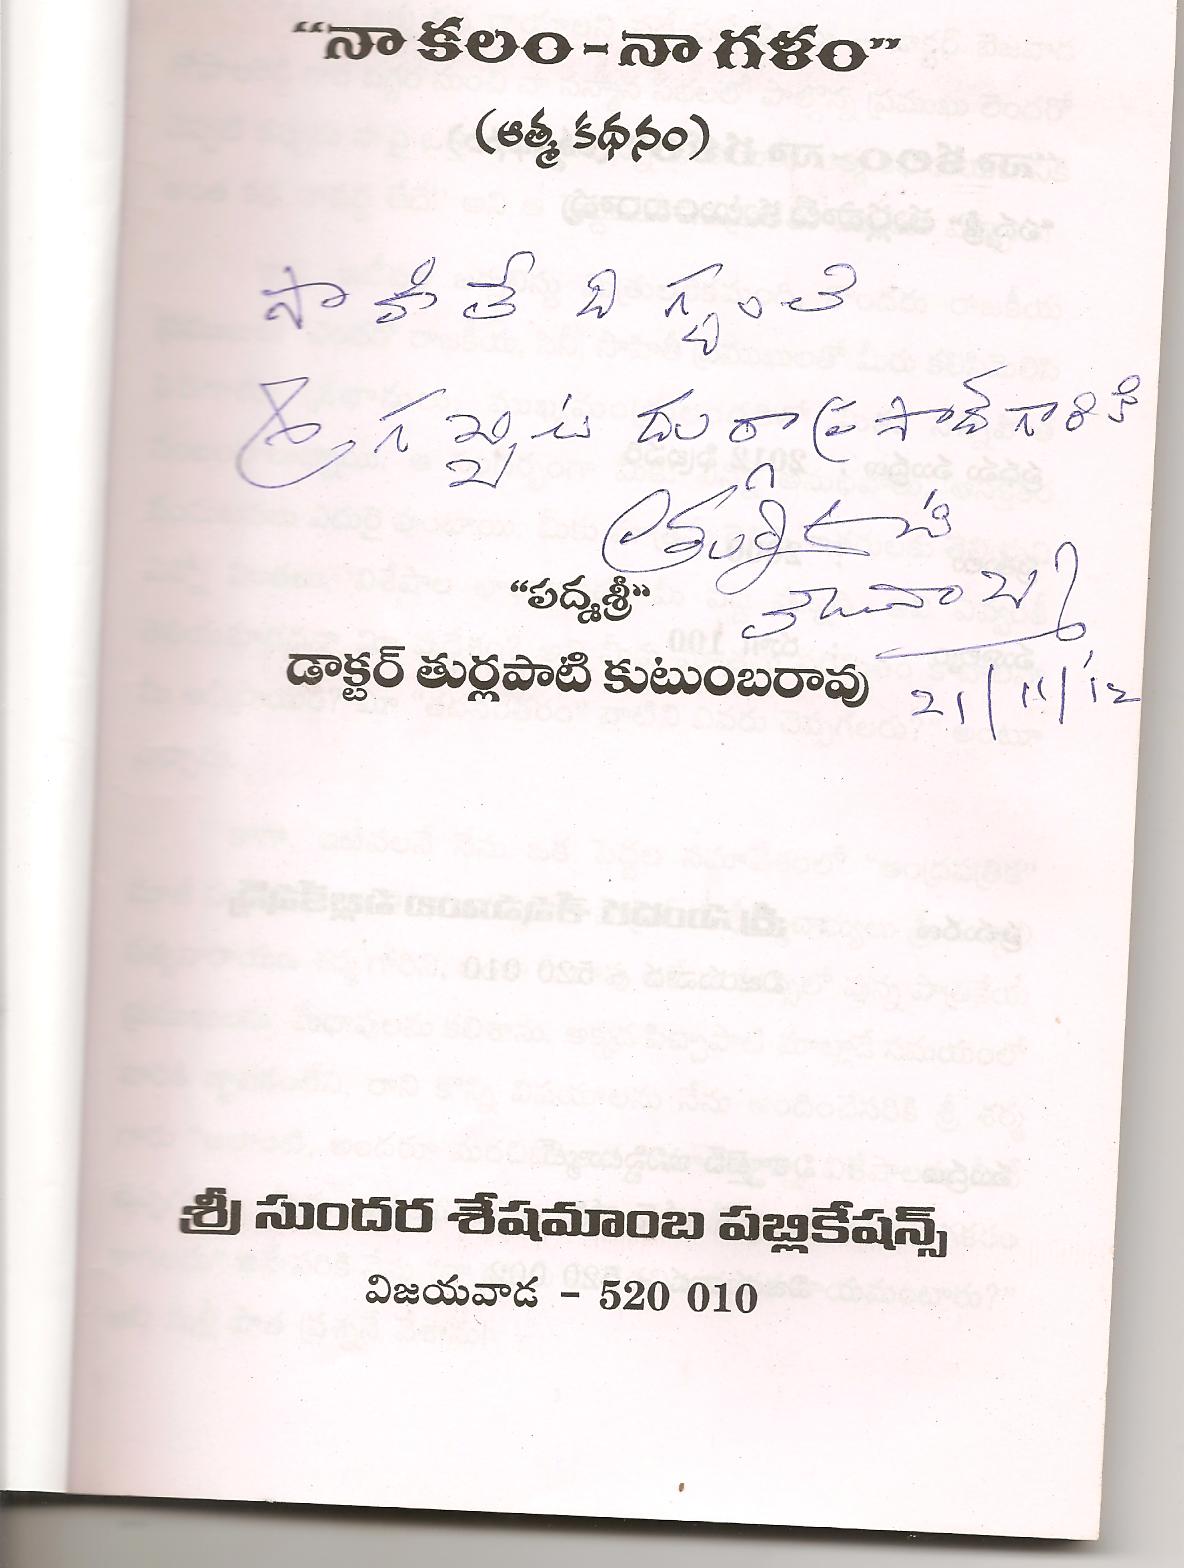 “నా కలం - నా గళం”
(ఆత్మ కథనం)
సాహితీ దిగ్గజం
శ్రీ గబ్బిట దుర్గాప్రసాద్ గారికి
“పద్మశ్రీ”
డాక్టర్ తుర్లపాటి కుటుంబరావు
21/11/'12
శ్రీ సుందర శేషమాంబ పబ్లికేషన్స్
విజయవాడ - 520 010